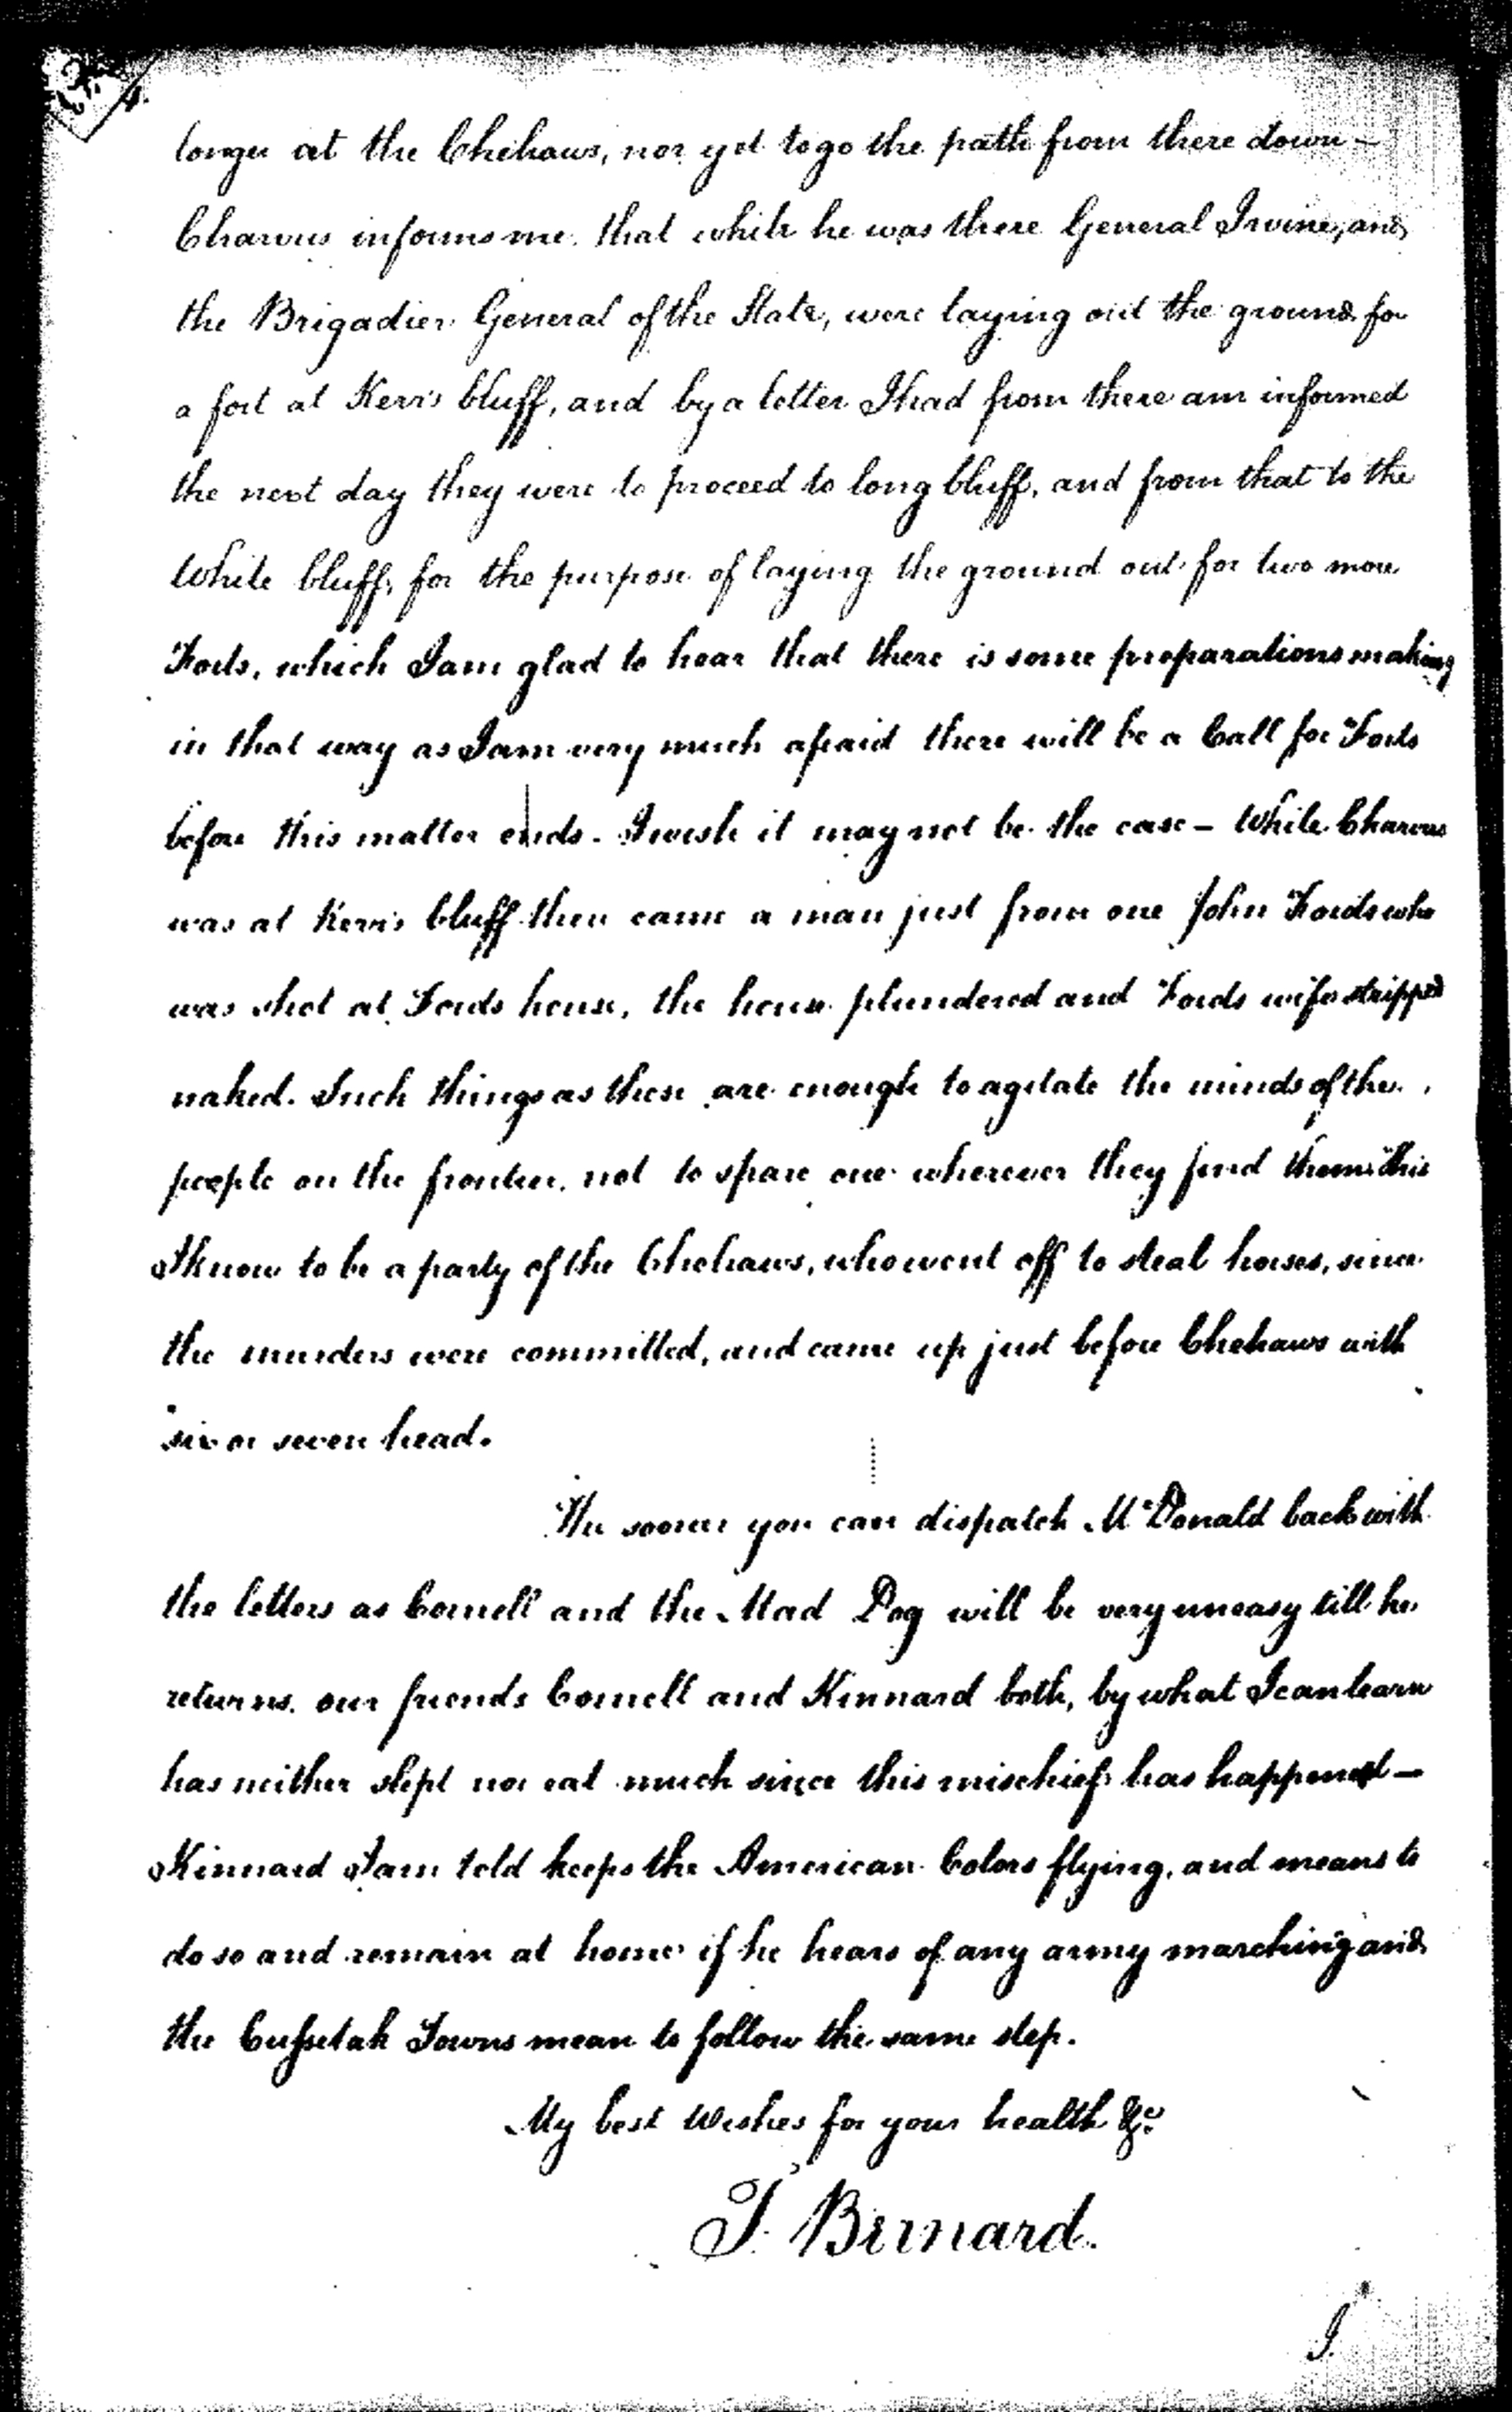 longer at the Chehaws, nor yet to go the path from there down —
Charvus informs me that while he was there General Irvine, and
the Brigadier General of the State, were laying out the ground for
a fort at Kerr's bluff, and by a letter I had from there am informed
the next day they were to proceed to long bluff, and from that to the
White bluff, for the purpose of laying the ground out for two more
Forts, which I am glad to hear that there is some preparations making
in that way as I am very much afraid there will be a Call for Forts
before this matter ends. I wish it may not be the case — While Charvus
was at Kerr's bluff then came a man just from one John Fords who
was shot at Fords house, the house plundered and Fords wife stripped
naked. Such things as these are enough to agitate the minds of the
people on the frontier, not to spare one wherever they find them. This
I know to be a party of the Chehaws, who went off to steal horses, since
the murders were committed, and came up just before Chehaws with
six or seven head.
The sooner you can dispatch McDonald back with
the letters as Cornell and the Mad Dog will be very uneasy till he
returns. our friends Cornell and Kinnard both, by what I can learn
has neither slept nor eat much since this mischief has happened —
Kinnard I am told keeps the American Colors flying, and means to
do so and remain at home if he hears of any army marching and
the Cussetah Towns mean to follow the same step.
My best Wishes for your health &c.
T. Bernard.
I.